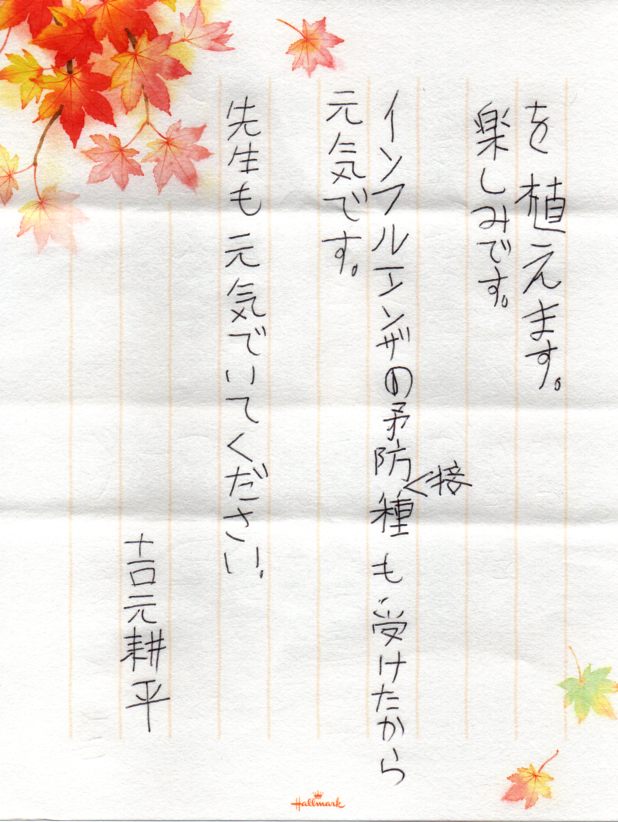 を植えます。
楽しみです。
インフルエンザの予防接種も受けたから
元気です。
先生も元気でいてください。
吉元耕平
Hallmark